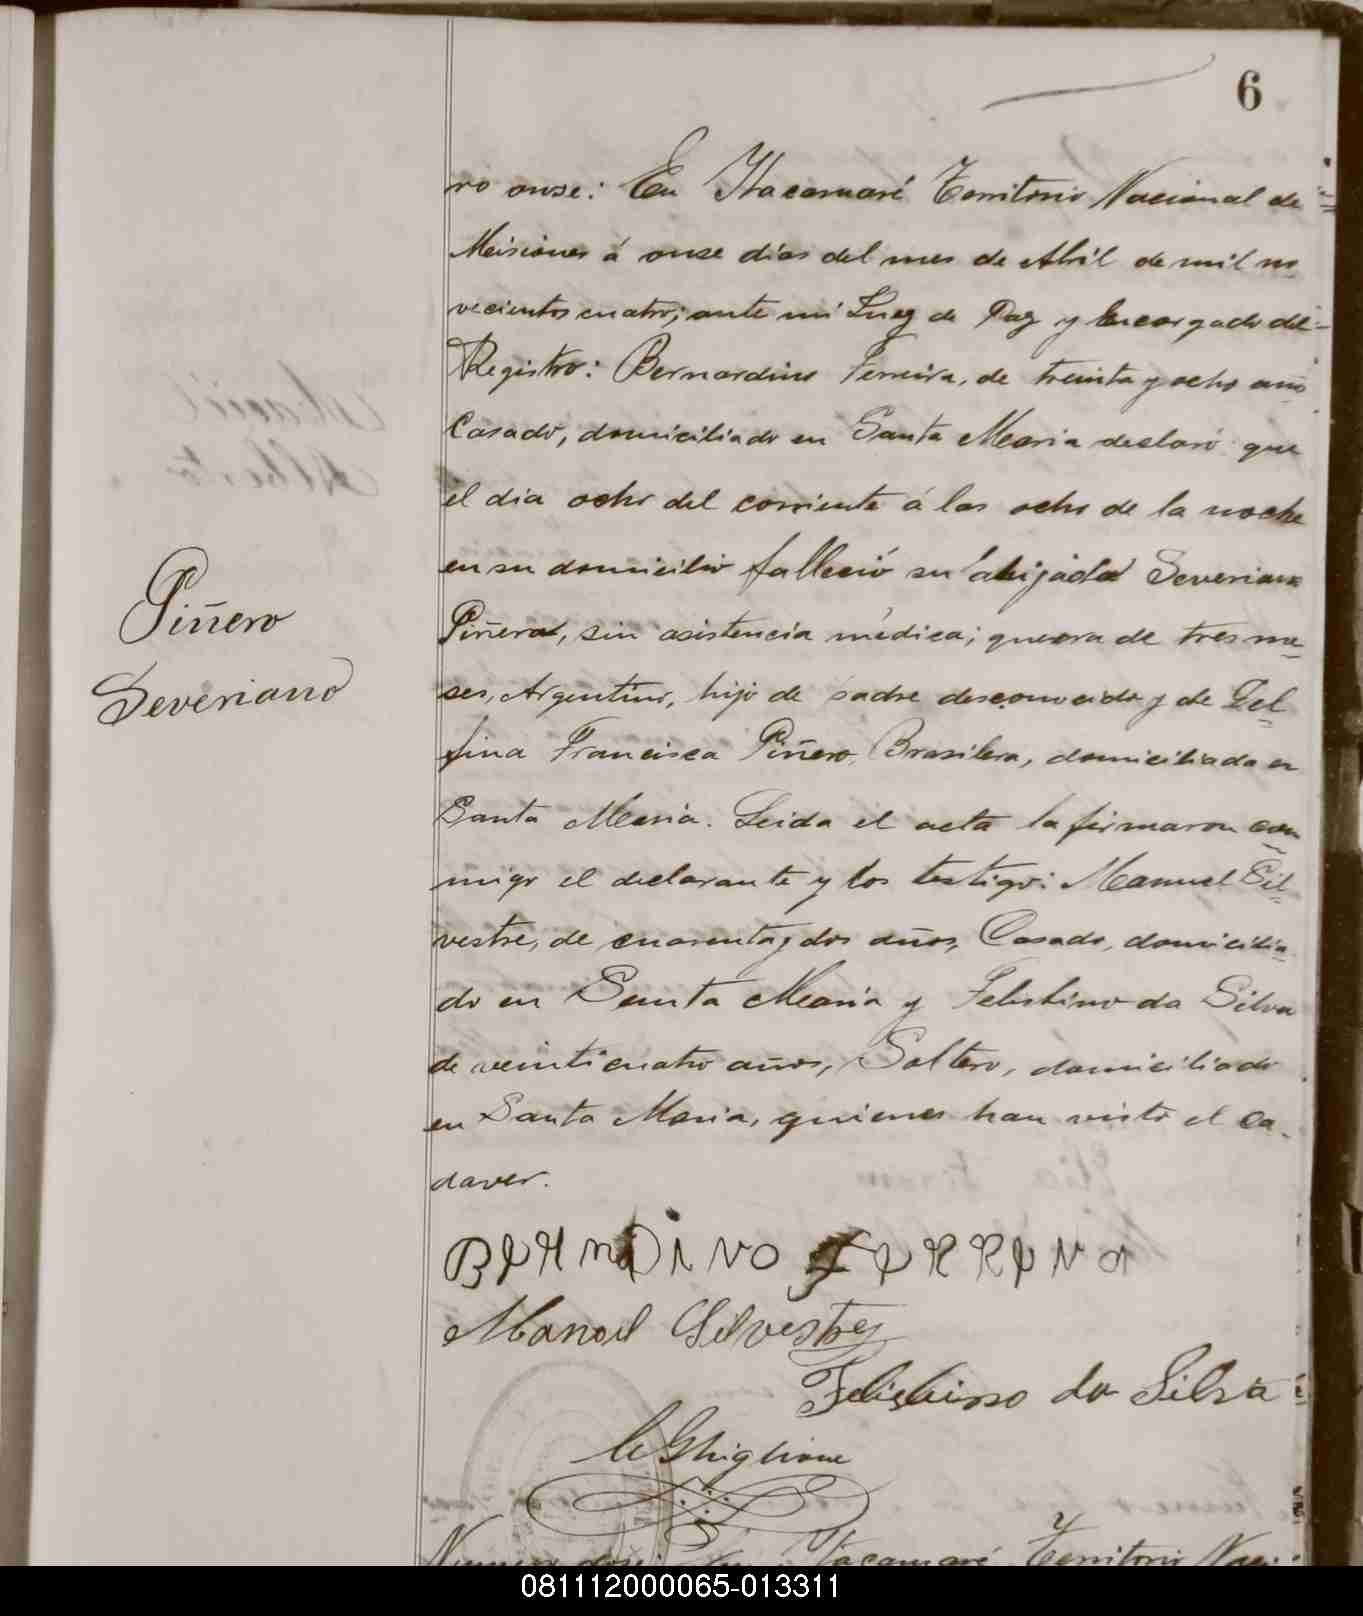 6
ro onse: En Itacaruaré Territorio Nacional de
Misiones á onse dias del mes de Abril de mil no
vecientos cuatro; ante mi Juez de Paz y Encargado del
Registro: Bernardino Ferreira, de treinta y ocho años
Casado, domiciliado en Santa Maria declaró que
el dia ocho del corriente á las ocho de la noche
en su domicilio falleció su ahijado Severiano
Piñero, sin asistencia médica; que era de tres me
ses, Argentino, hijo de padre desconocido y de Del
fina Francisca Piñero, Brasilera, domiciliada en
Santa Maria. Leida el acta la firmaron con
migo el declarante y los testigo: Manuel Sil
vestre, de cuarenta y dos años, Casado, domicilia
do en Santa Maria y Felisbino da Silva
de veinticuatro años, Soltero, domiciliado
en Santa Maria, quienes han visto el ca-
daver.
Piñero
Severiano
Manoel Silvestre
Felisbino da Silva
C Ghiglione
Numero dose: En Itacaruaré Territorio Naci
081112000065-013311